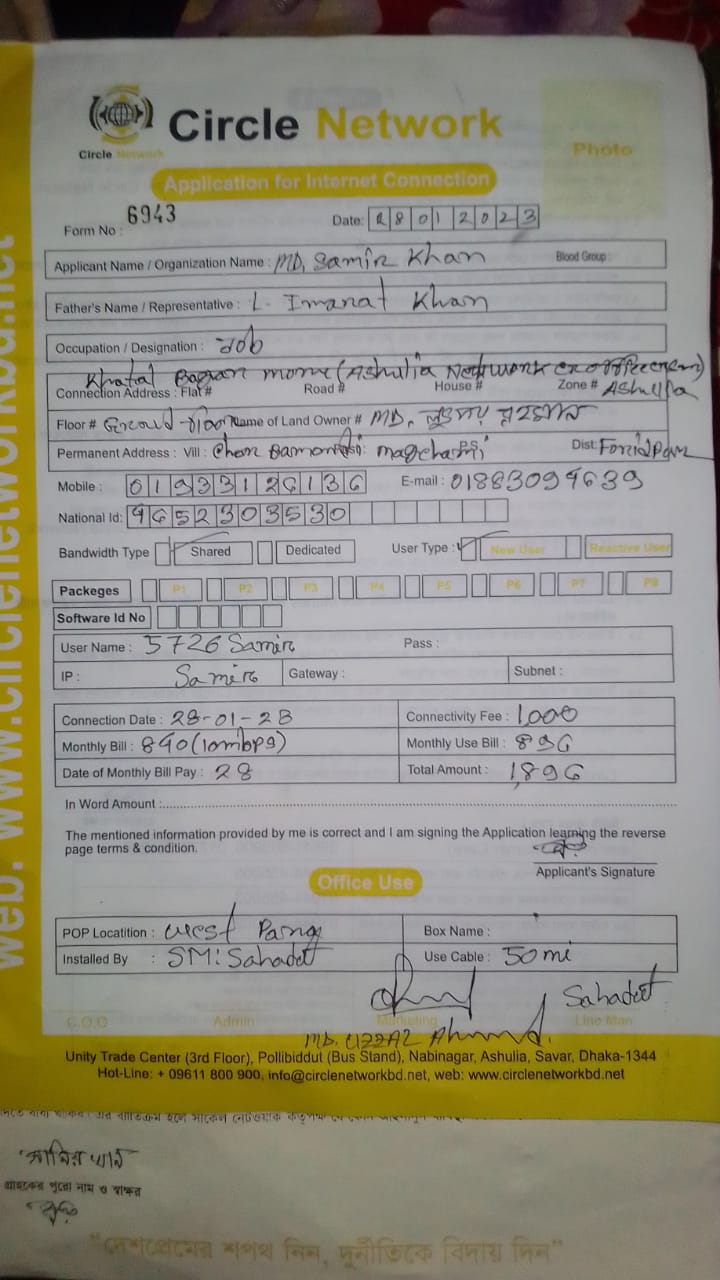 Circle Network
Circle Network
Photo
Application for Internet Connection
Form No : 6943
Date: 28012023
Applicant Name / Organization Name : MD. Samir Khan Blood Group :
Father's Name / Representative : L. Imarat Khan
Occupation / Designation : Job
Khatal Bagan more (Ashulia Network
Connection Address : Flat# Road # House # Zone # Ashulia
Floor # Name of Land Owner # MD.
Permanent Address : Vill : Char P.S: Dist: Foridpur
Mobile : 01933126136 E-mail : 01883099639
National Id: 4652303530
Bandwidth Type Shared Dedicated User Type : New User Reactive User
Packeges P1 P2 P3 P4 P5 P6 P7 P8
Software Id No
User Name : 5726 Samir Pass :
IP : Samir Gateway : Subnet :
Connection Date : 28-01-23 Connectivity Fee : 1,000
Monthly Bill : 840 (10mbps) Monthly Use Bill : 896
Date of Monthly Bill Pay : 28 Total Amount : 1,896
In Word Amount :
The mentioned information provided by me is correct and I am signing the Application learning the reverse
page terms & condition.
Applicant's Signature
Office Use
POP Locatition : West Box Name :
Installed By : SM: Sahadet Use Cable : 50 mi
Sahadet
C.O.O Admin Marketing Line Man
Unity Trade Center (3rd Floor), Pollibiddut (Bus Stand), Nabinagar, Ashulia, Savar, Dhaka-1344
Hot-Line: + 09611 800 900, info@circlenetworkbd.net, web: www.circlenetworkbd.net
web: www.circlenetworkbd.net
সামির খান
গ্রাহকের পুরো নাম ও স্বাক্ষর
"দেশপ্রেমের শপথ নিন, দুর্নীতিকে বিদায় দিন"